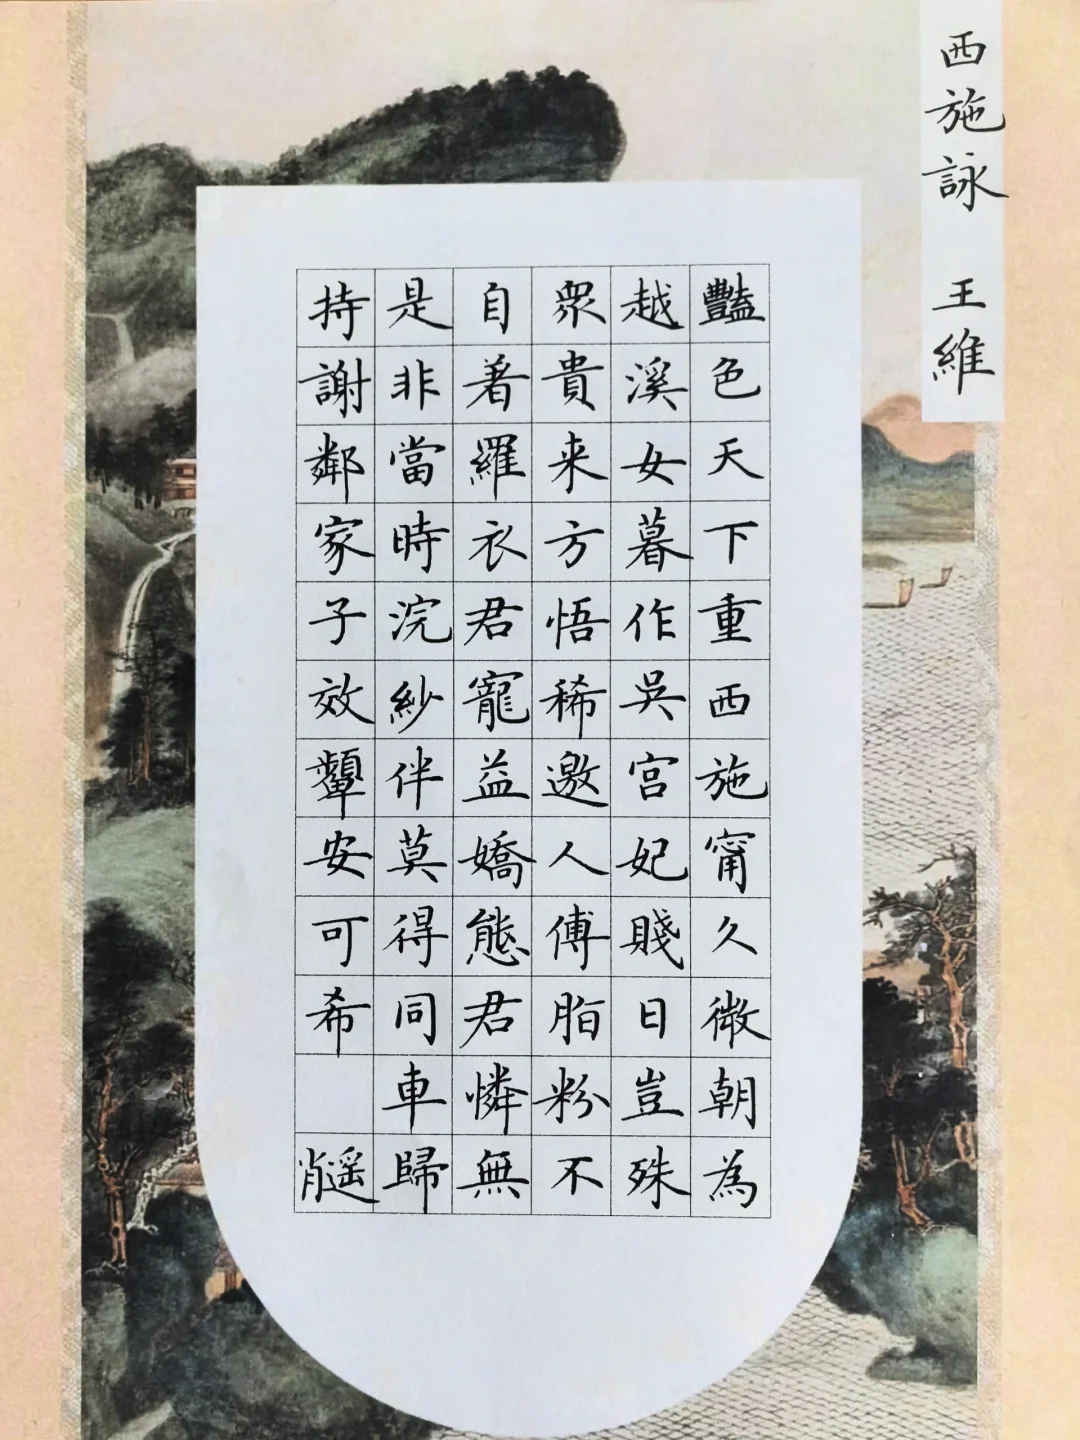 西施詠 王維
豔色天下重西施甯久微朝為
越溪女暮作吳宮妃賤日豈殊
眾貴来方悟稀邀人傅脂粉不
自著羅衣君寵益嬌態君憐無
是非當時浣紗伴莫得同車歸
持謝鄰家子效顰安可希